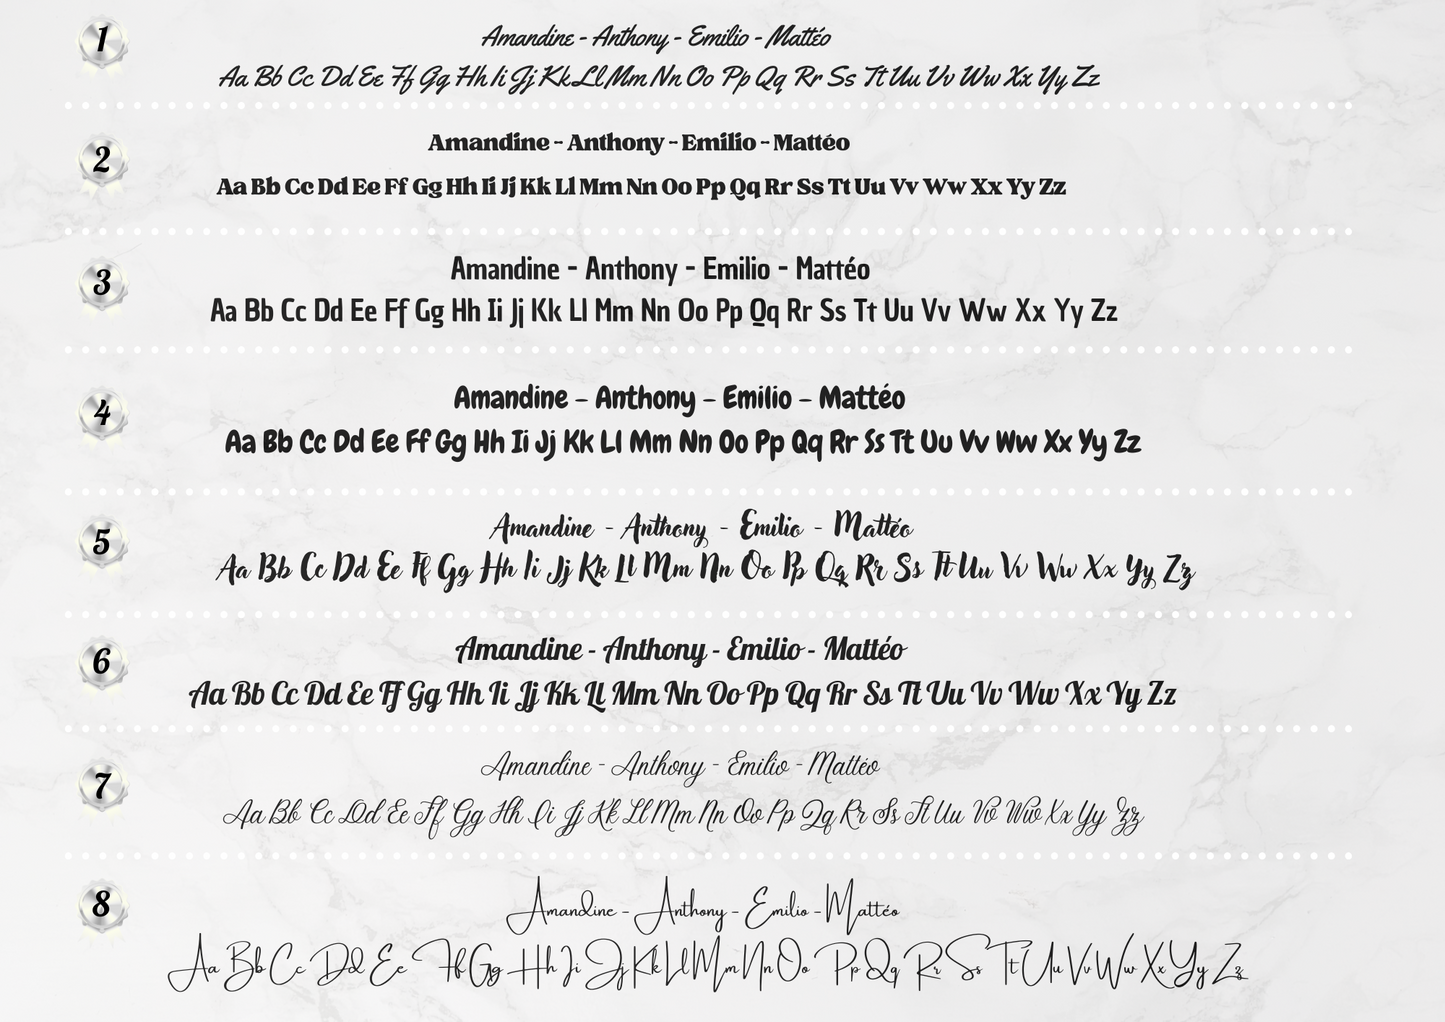 1
Amandine - Anthony - Emilio - Mattéo
Aa Bb Cc Dd Ee Ff Gg Hh Ii Jj Kk Ll Mm Nn Oo Pp Qq Rr Ss Tt Uu Vv Ww Xx Yy Zz
2
Amandine - Anthony - Emilio - Mattéo
Aa Bb Cc Dd Ee Ff Gg Hh Ii Jj Kk Ll Mm Nn Oo Pp Qq Rr Ss Tt Uu Vv Ww Xx Yy Zz
3
Amandine - Anthony - Emilio - Mattéo
Aa Bb Cc Dd Ee Ff Gg Hh Ii Jj Kk Ll Mm Nn Oo Pp Qq Rr Ss Tt Uu Vv Ww Xx Yy Zz
4
Amandine - Anthony - Emilio - Mattéo
Aa Bb Cc Dd Ee Ff Gg Hh Ii Jj Kk Ll Mm Nn Oo Pp Qq Rr Ss Tt Uu Vv Ww Xx Yy Zz
5
Amandine - Anthony - Emilio - Mattéo
Aa Bb Cc Dd Ee Ff Gg Hh Ii Jj Kk Ll Mm Nn Oo Pp Qq Rr Ss Tt Uu Vv Ww Xx Yy Zz
6
Amandine - Anthony - Emilio - Mattéo
Aa Bb Cc Dd Ee Ff Gg Hh Ii Jj Kk Ll Mm Nn Oo Pp Qq Rr Ss Tt Uu Vv Ww Xx Yy Zz
7
Amandine - Anthony - Emilio - Mattéo
Aa Bb Cc Dd Ee Ff Gg Hh Ii Jj Kk Ll Mm Nn Oo Pp Qq Rr Ss Tt Uu Vv Ww Xx Yy Zz
8
Amandine - Anthony - Emilio - Mattéo
Aa Bb Cc Dd Ee Ff Gg Hh Ii Jj Kk Ll Mm Nn Oo Pp Qq Rr Ss Tt Uu Vv Ww Xx Yy Zz